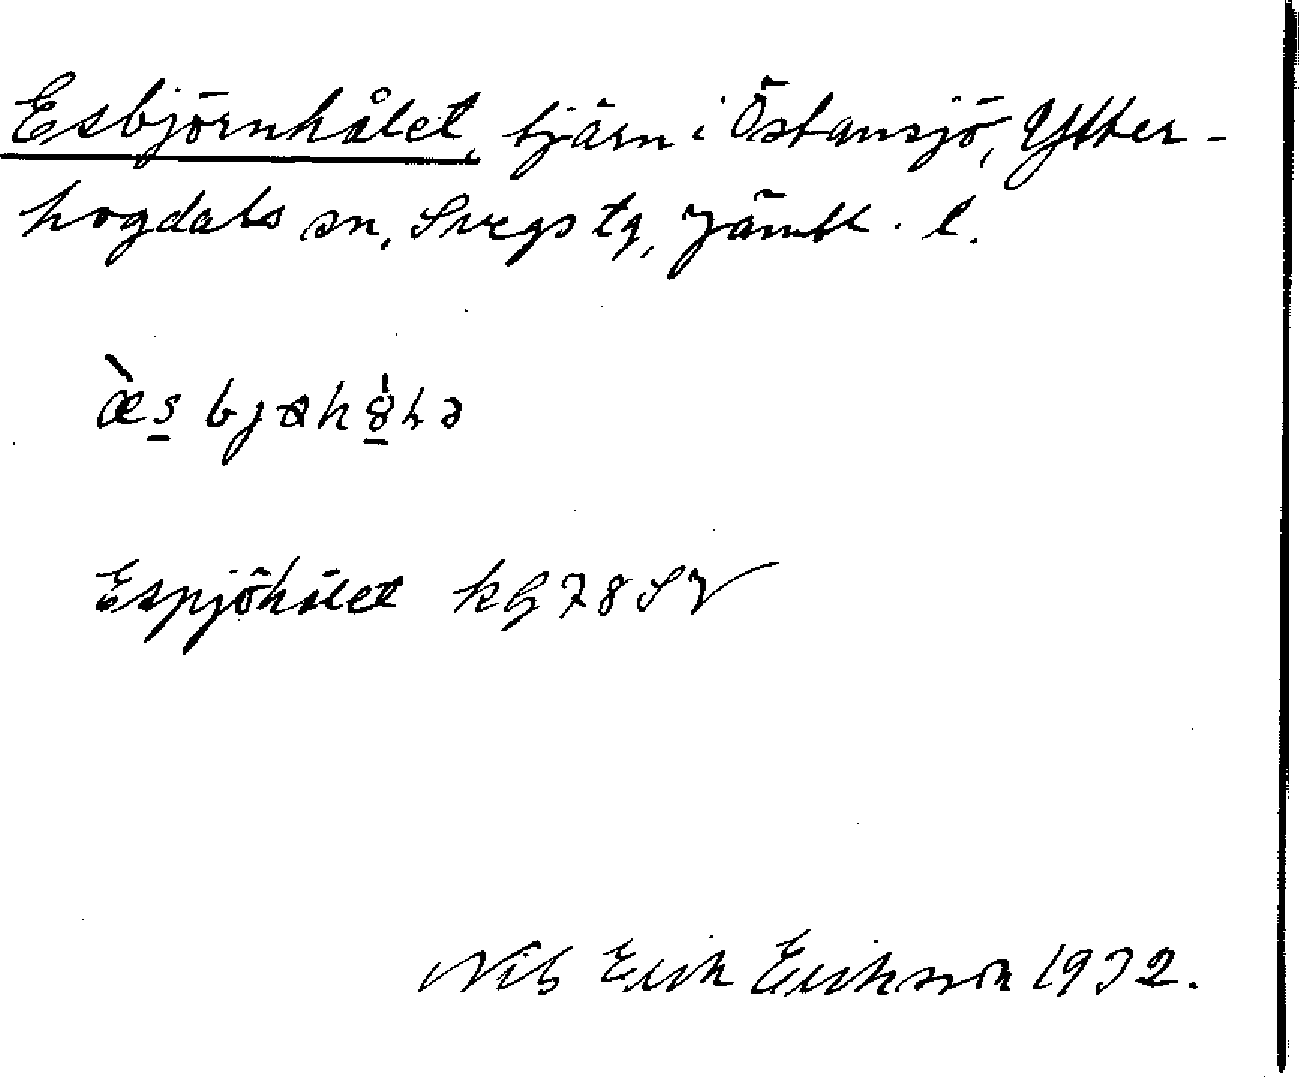 Esbjörnhålet, tjärn i Östansjö, Ytter-
hogdals sn, Svegs tg, Jämtl. l.
æ̀s bjæhȣ̍lə
Espjöhålet kG78SV
Nils Erik Eriksson 1932.